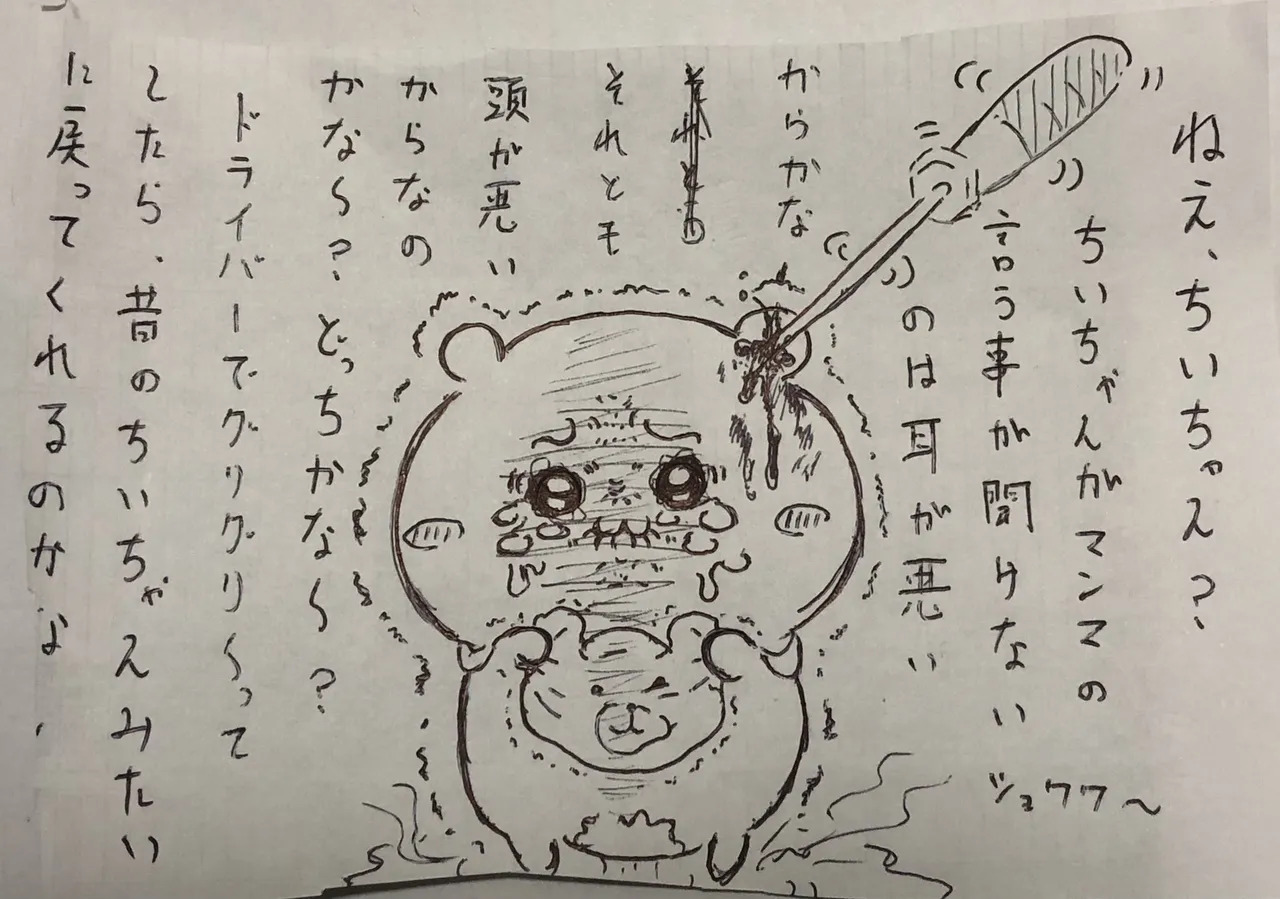 ねえ、ちいちゃん?
ちいちゃんがマンマの
言う事が聞けない
のは耳が悪い
からかな
それとも
それとも
頭が悪い
からなの
かな〜?どっちかな〜?
ドライバーでグリグリ〜って
したら、昔のちいちゃんみたい
に戻ってくれるのかなぁ
ジョワワ〜